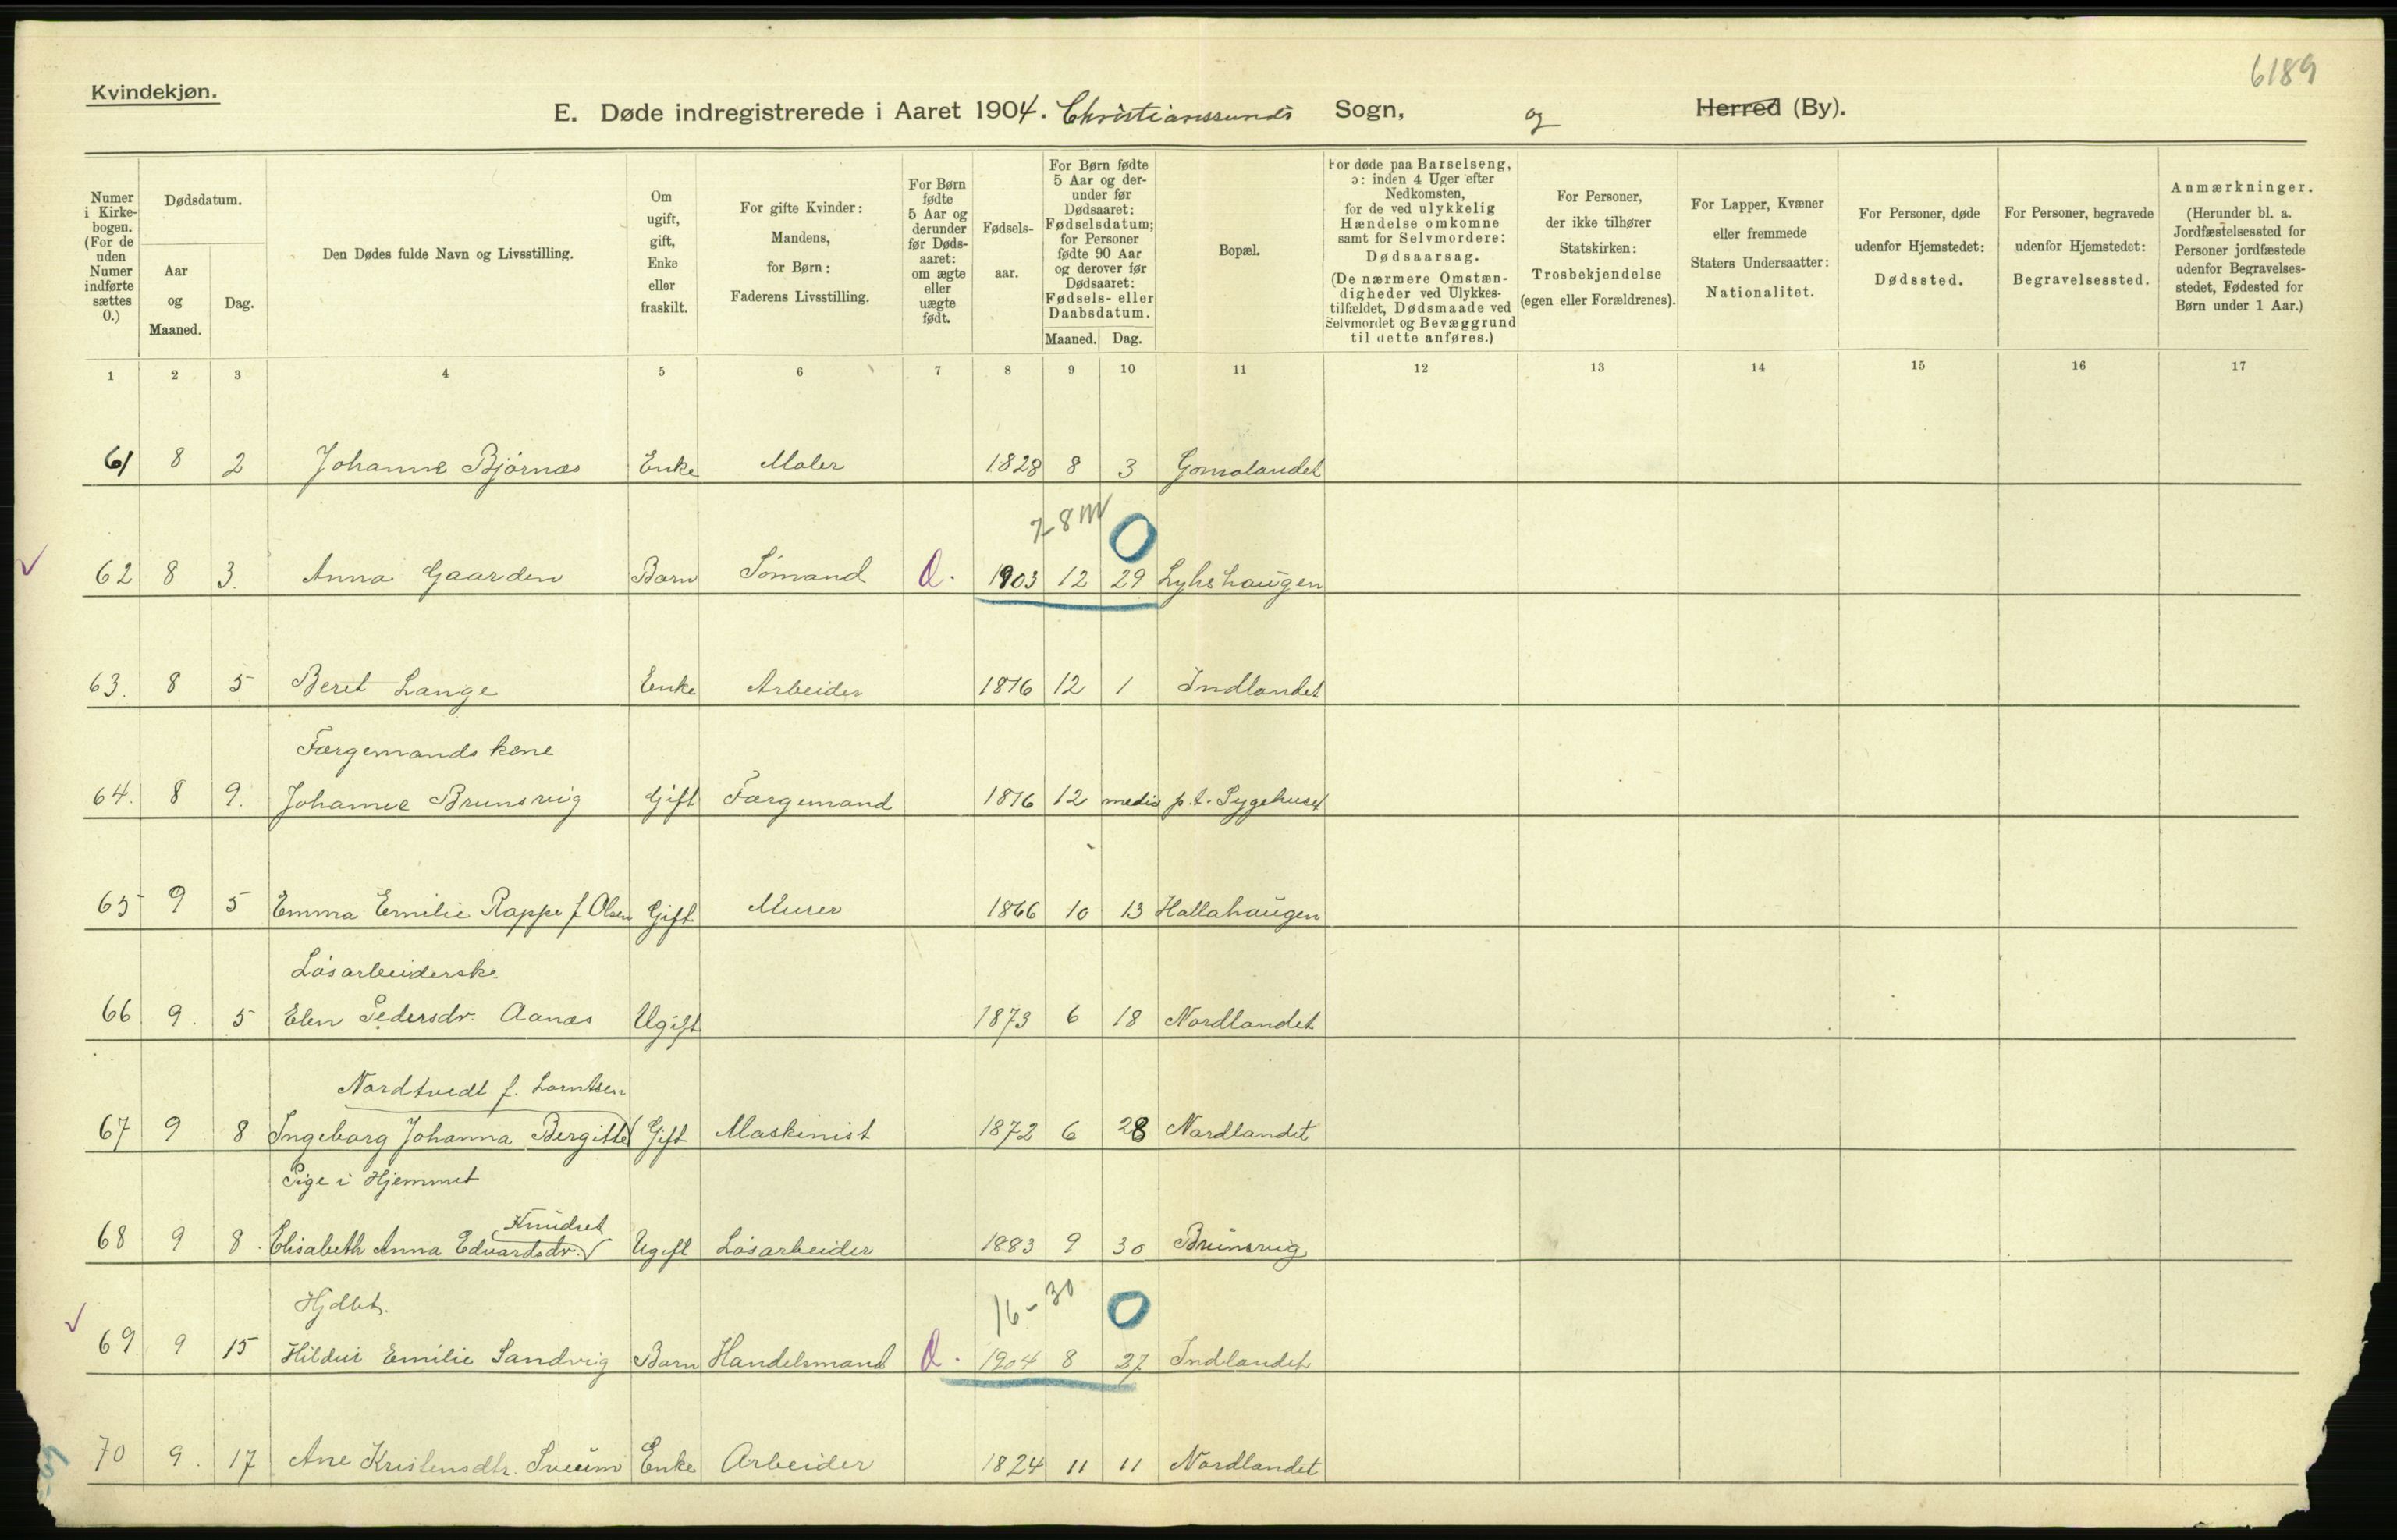 6189
Kvindekjøn.
E. Døde indregistrerede i Aaret 1904. Christianssunds Sogn, og Herred (By).
Numer i Kirkebogen. (For de uden Numer indførte sættes 0.)
Dødsdatum.
Aar og Maaned.
Dag.
Den Dødes fulde Navn og Livsstilling.
Om ugift, gift, Enke eller fraskilt.
For gifte Kvinder: Mandens, for Børn: Faderens Livsstilling.
For Børn fødte 5 Aar og derunder før Dødsaaret: om ægte eller uægte født.
Fødselsaar.
For Børn fødte 5 Aar og derunder før Dødsaaret: Fødselsdatum; for Personer fødte 90 Aar og derover før Dødsaaret: Fødsels- eller Daabsdatum.
Maaned. Dag.
Bopæl.
For døde paa Barselseng, ɔ: inden 4 Uger efter Nedkomsten, for de ved ulykkelig Hændelse omkomne samt for Selvmordere: Dødsaarsag. (De nærmere Omstændigheder ved Ulykkestilfældet, Dødsmaade ved Selvmordet og Bevæggrund til dette anføres.)
For Personer, der ikke tilhører Statskirken: Trosbekjendelse (egen eller Forældrenes).
For Lapper, Kvæner eller fremmede Staters Undersaatter: Nationalitet.
For Personer, døde udenfor Hjemstedet: Dødssted.
For Personer, begravede udenfor Hjemstedet: Begravelsessted.
Anmærkninger. (Herunder bl. a. Jordfæstelsessted for Personer jordfæstede udenfor Begravelsesstedet, Fødested for Børn under 1 Aar.)
1 2 3 4 5 6 7 8 9 10 11 12 13 14 15 16 17
61 8 2 Johanne Bjørnæs Enke Maler 1828 8 3 Gomalandet
7-8 m 0
62 8 3. Anna Gaarden Barn Sømand 1903 12 29 Lyhshaugen
63. 8 5 Beret Lange Enke Arbeider 1816 12 1 Indlandet
Færgemands kone
64. 8 9. Johanne Brunsvig Gift Færgemand 1816 12 medio p.t. Sygehuset
65 9 5 Emma Emilie Rappe f. Olsen Gift Murer 1866 10 13 Hallahaugen
Løsarbeiderske
66 9. 5 Elen Pedersdr. Aanæs Ugift 1873 6 18 Nordlandet
Nordtvedt f. Lorntsen
67 9 8 Ingeborg Johanna Bergitte Gift Maskinist 1872 6 28 Nordlandet
Pige i Hjemmet
Knudset
68 9 8. Elisabeth Anna Edvardsdr. Ugift Løsarbeider 1883 9 30 Brunsvig
Hjdbt. 16-30 0
69 9 15 Hildur Emilie Sandvig Barn Handelsmand 1904 8 27 Indlandet
70 9. 17 Ane Kristensdtr. Sveum Enke Arbeider 1824 11 11 Nordlandet